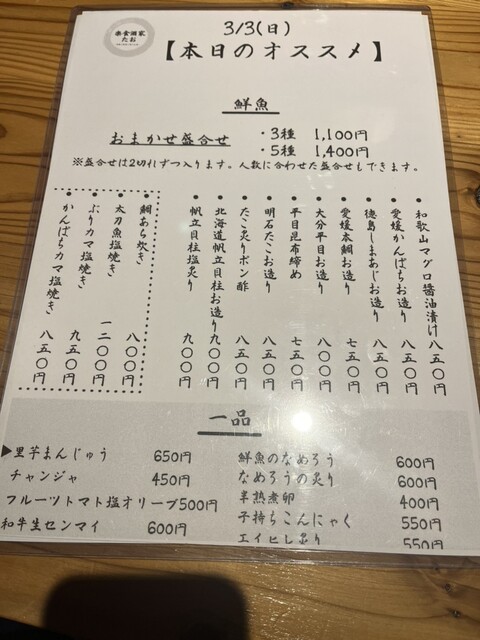 楽食酒家
たお
3/3(日)
【本日のオススメ】
鮮魚
おまかせ盛合せ
・3種 1,100円
・5種 1,400円
※盛合せは2切れずつ入ります。人数に合わせた盛合せもできます。
・和歌山マグロ醤油漬け 八五〇円
・愛媛かんぱちお造り 八五〇円
・徳島しまあじお造り 八五〇円
・愛媛本鯛お造り 七五〇円
・大分平目お造り 八〇〇円
・平目昆布締め 七五〇円
・明石たこお造り 八五〇円
・たこ炙りポン酢 八五〇円
・北海道帆立貝柱お造り 九〇〇円
・帆立貝柱塩炙り 九〇〇円
・鯛あら炊き 八〇〇円
・太刀魚塩焼き 一二〇〇円
・ぶりカマ塩焼き 九五〇円
・かんぱちカマ塩焼き 八五〇円
一品
▶里芋まんじゅう 650円
チャンジャ 450円
フルーツトマト塩オリーブ 500円
和牛生センマイ 600円
鮮魚のなめろう 600円
なめろうの炙り 600円
半熟煮卵 400円
子持ちこんにゃく 550円
エイヒレ炙り 550円